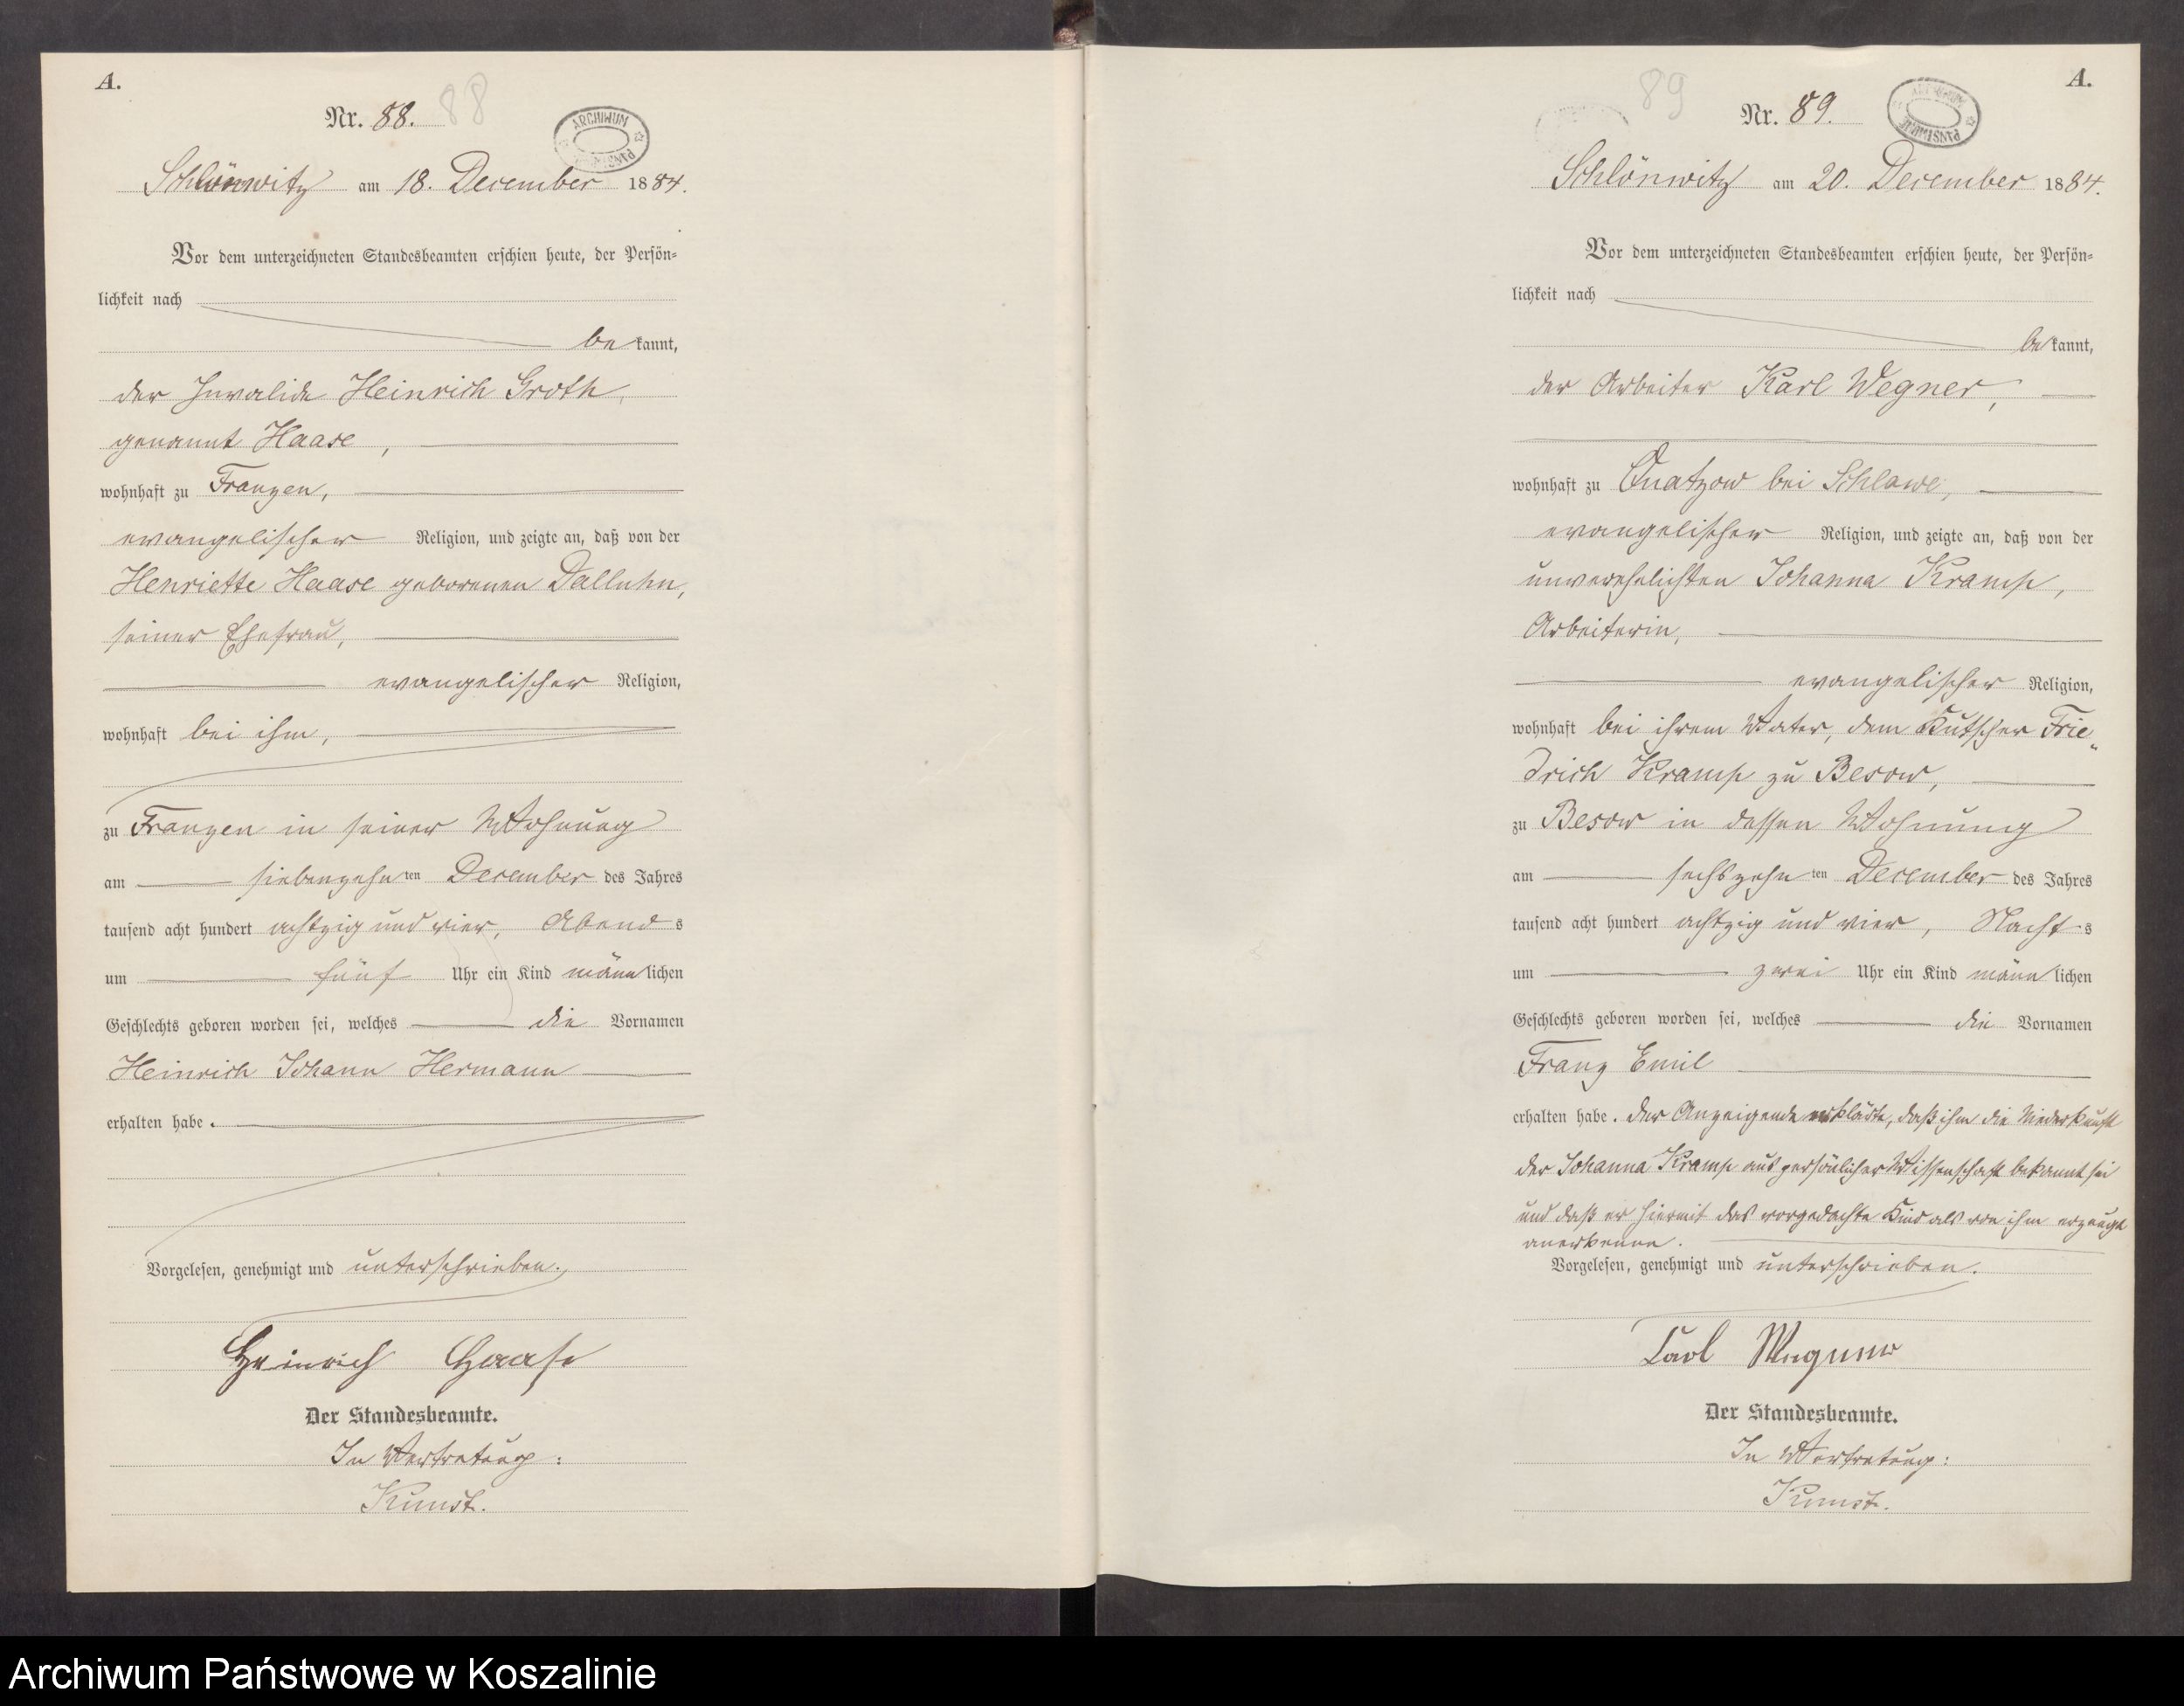 A.
Nr. 88. 88
ARCHIWUM PAŃSTWOWE
Schlönwitz am 18. December 1884.
Vor dem unterzeichneten Standesbeamten erschien heute, der Persön-
lichkeit nach
bekannt,
der Invalide Heinrich Groth,
genannt Haase,
wohnhaft zu Franzen,
evangelischer Religion, und zeigte an, daß von der
Henriette Haase geborenen Dalluhn,
seiner Ehefrau,
evangelischer Religion,
wohnhaft bei ihm,
zu Franzen in seiner Wohnung
am siebenzehnten December des Jahres
tausend acht hundert achtzig und vier, Abends
um fünf Uhr ein Kind männlichen
Geschlechts geboren worden sei, welches die Vornamen
Heinrich Johann Hermann
erhalten habe.
Vorgelesen, genehmigt und unterschrieben.
Heinrich Haase
Der Standesbeamte.
In Vertretung:
Kunst.
A.
89 Nr. 89.
ARCHIWUM PAŃSTWOWE
Schlönwitz am 20. December 1884.
Vor dem unterzeichneten Standesbeamten erschien heute, der Persön-
lichkeit nach
bekannt,
der Arbeiter Karl Wegner,
wohnhaft zu Quatzow bei Schlawe,
evangelischer Religion, und zeigte an, daß von der
unverehelichten Johanna Kramp,
Arbeiterin,
evangelischer Religion,
wohnhaft bei ihrem Vater, dem Kutscher Frie„
drich Kramp zu Besow,
zu Besow in dessen Wohnung
am sechszehnten December des Jahres
tausend acht hundert achtzig und vier, Nachts
um zwei Uhr ein Kind männlichen
Geschlechts geboren worden sei, welches die Vornamen
Franz Emil
erhalten habe. Der Anzeigende erklärte, daß ihm die Niederkunft
der Johanna Kramp aus persönlicher Wissenschaft bekannt sei
und daß er hiermit das vorgedachte Kind als von ihm erzeugt
anerkenne.
Vorgelesen, genehmigt und unterschrieben.
Carl Wegner
Der Standesbeamte.
In Vertretung:
Kunst.
Archiwum Państwowe w Koszalinie